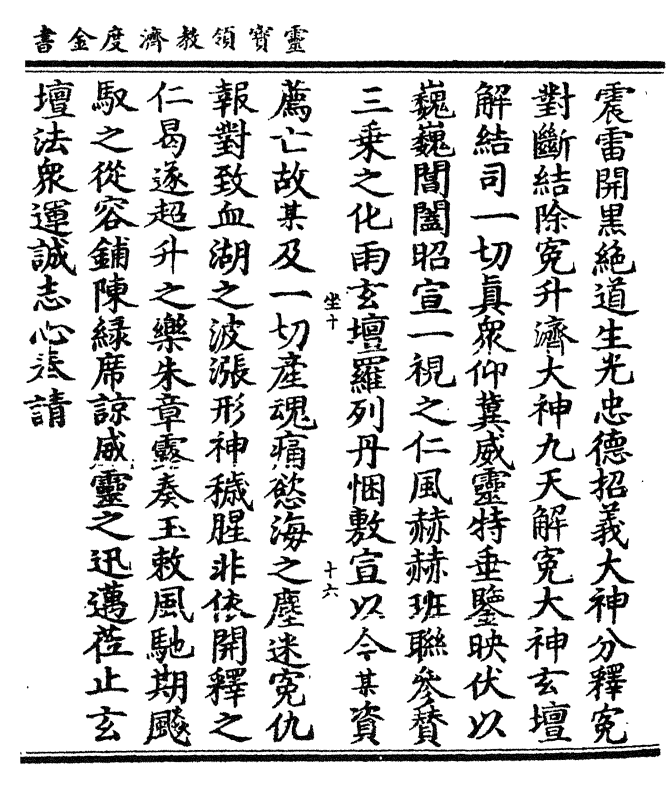 靈寶領教濟度金書
震雷開黑絶道生光忠德招義大神分釋寃
對斷結除寃升濟大神九天解寃大神玄壇
解結司一切眞衆仰冀威靈特垂鑒映伏以
巍巍閶闔昭宣一視之仁風赫赫班聯參賛
三乗之化雨玄壇羅列丹悃敷宣以今某資
坐十
十六
薦亡故某及一切產魂痛慾海之塵迷寃仇
報對致血湖之波漲形神穢腥非依開釋之
仁曷遂超升之樂朱章露奏玉敕風馳期飈
馭之從容鋪陳緑席諒威靈之迅邁莅止玄
壇法衆運誠志心奏請